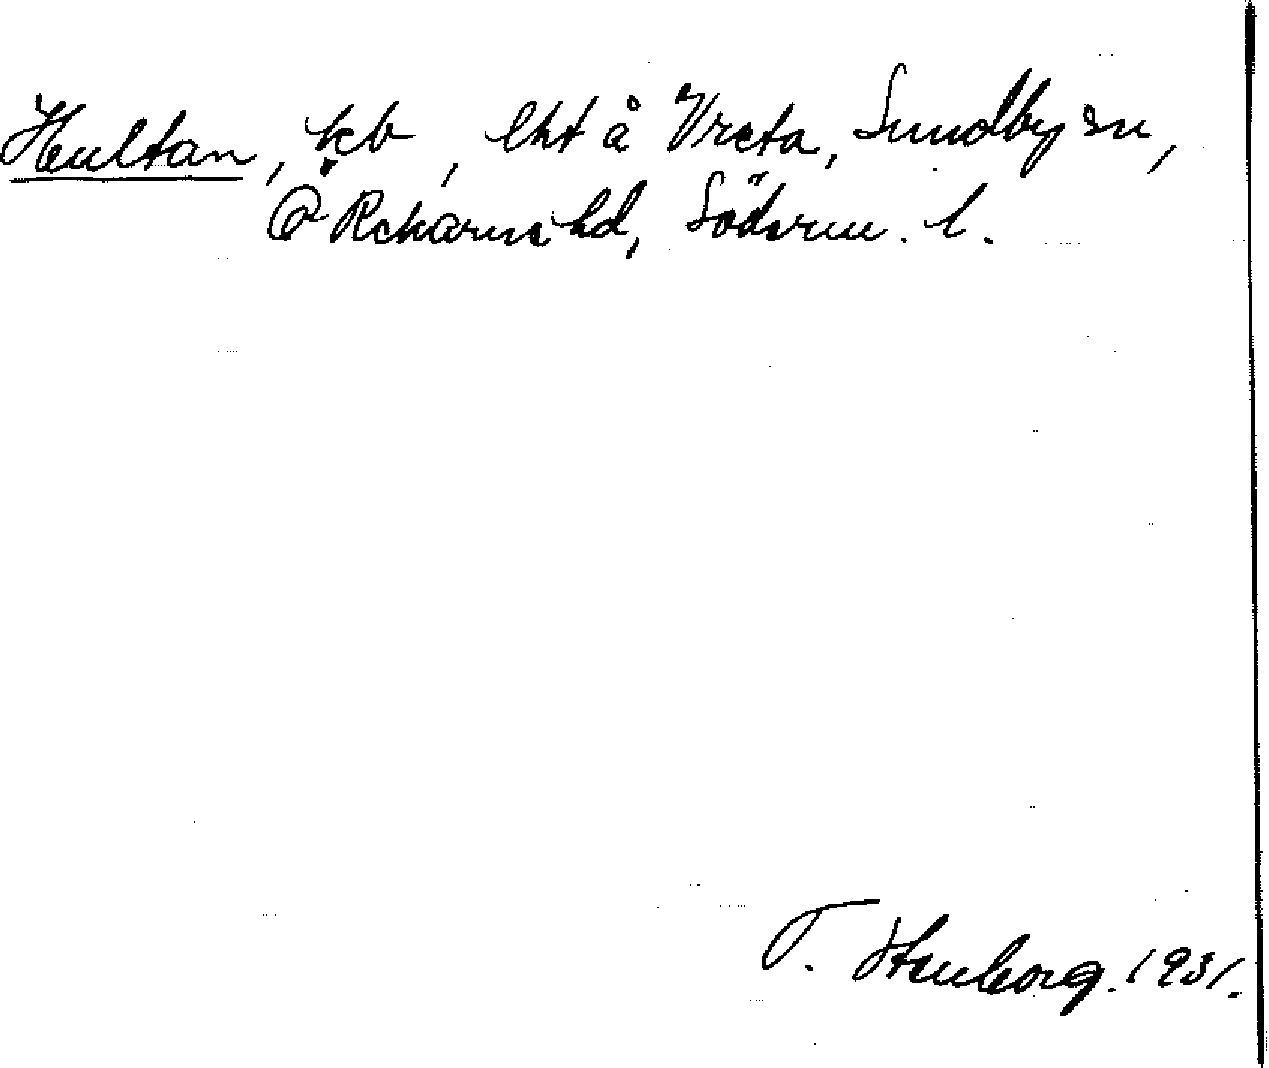 Hultan, kb, lht å Vreta, Sundby sn,
Ö Rekarne hd, Söderm. l.
T. Stenborg. 1931.